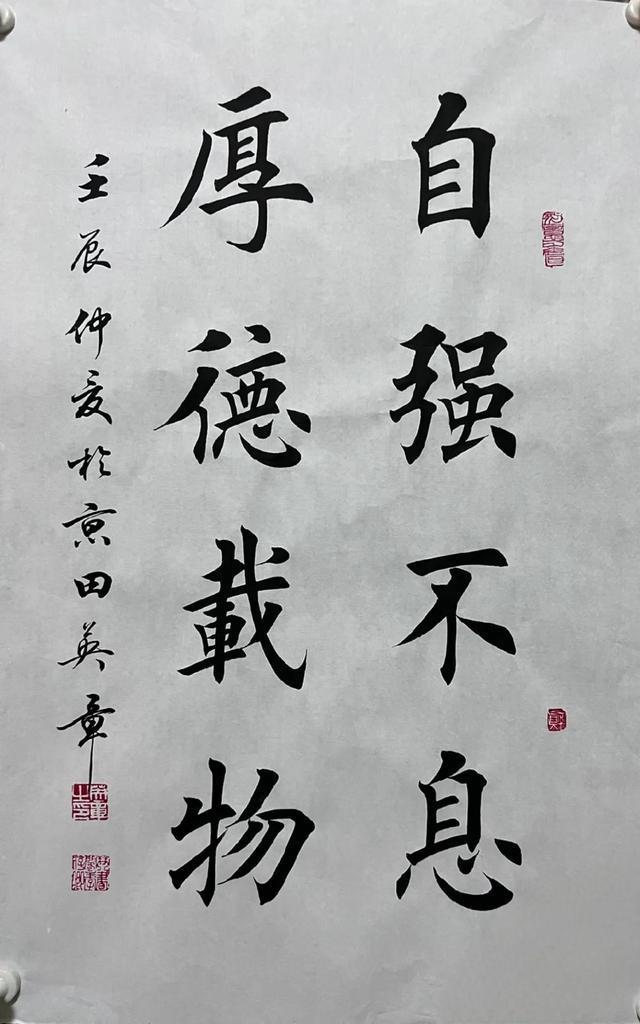 自强不息
厚德載物
壬辰仲夏於京田英章